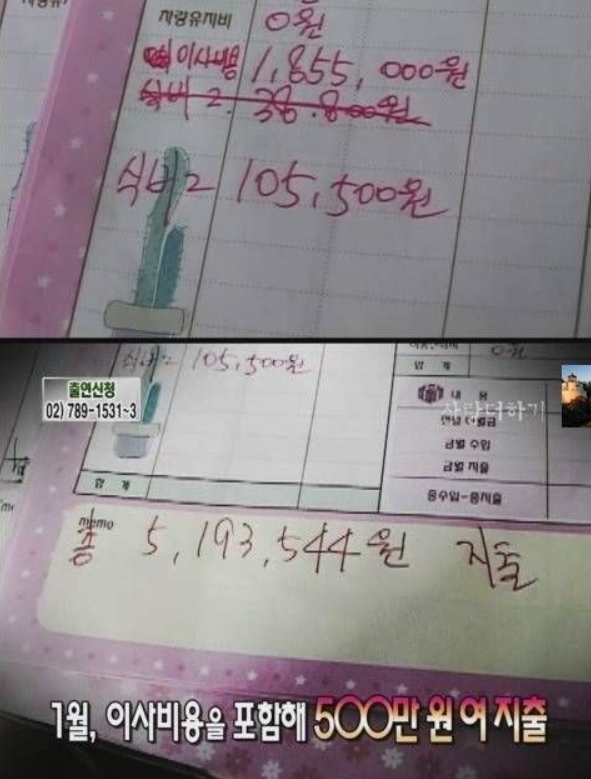 차량유지비 0원
이사비용 1,855,000원
식비 2. 38.800원
식비2 105,500원
식비2 105,500원
합 계
0원
출연신청
02) 789-1531~3
내 용
사람더하기
전월 이월금
금월 수입
금월 지출
총수입-총지출
합 계
memo
총 5,193,544원 지출
1월, 이사비용을 포함해 500만 원 여 지출